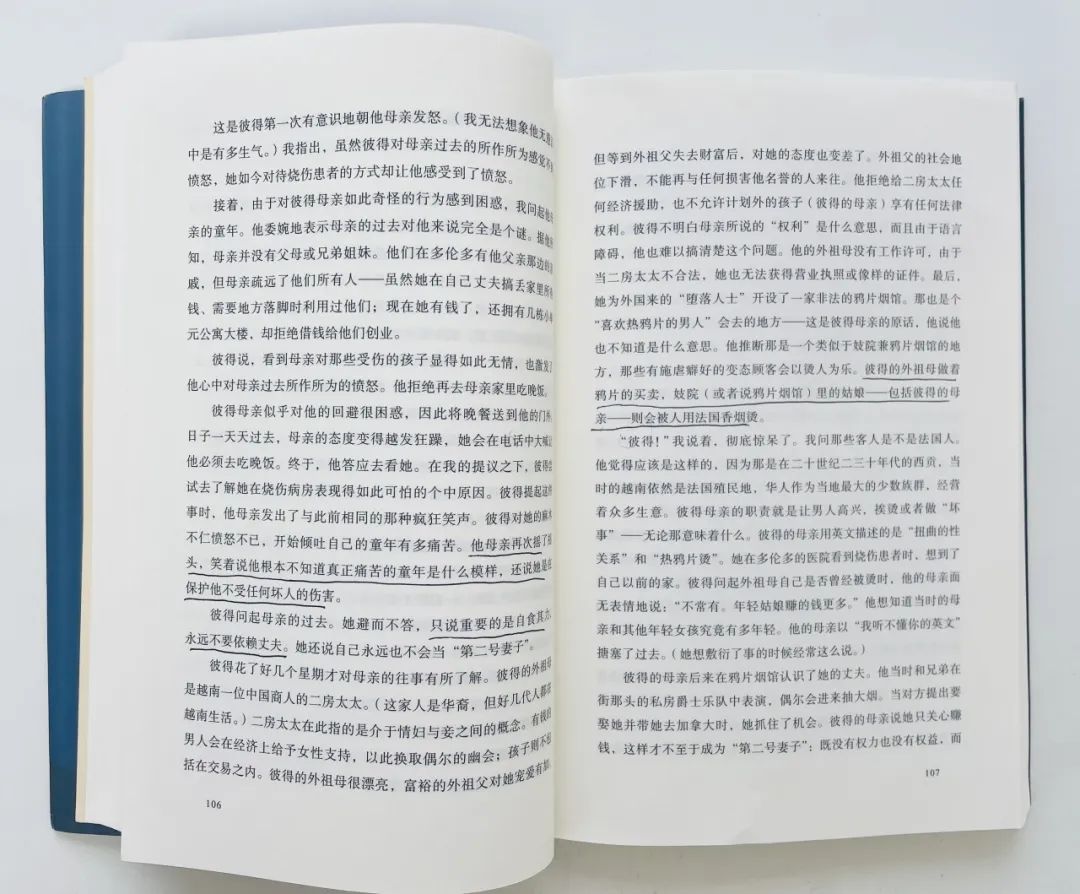 这是彼得第一次有意识地朝他母亲发怒。（我无法想象他无意
中是有多生气。）我指出，虽然彼得对母亲过去的所作所为感觉不到
愤怒，她如今对待烧伤患者的方式却让他感受到了愤怒。
接着，由于对彼得母亲如此奇怪的行为感到困惑，我问起他母
亲的童年。他委婉地表示母亲的过去对他来说完全是个谜。据他所
知，母亲并没有父母或兄弟姐妹。他们在多伦多有他父亲那边的亲
戚，但母亲疏远了他们所有人——虽然她在自己丈夫搞丢家里所有
钱、需要地方落脚时利用过他们；现在她有钱了，还拥有几栋小单
元公寓大楼，却拒绝借钱给他们创业。
彼得说，看到母亲对那些受伤的孩子显得如此无情，也激发了
他心中对母亲过去所作所为的愤怒。他拒绝再去母亲家里吃晚饭。
彼得母亲似乎对他的回避很困惑，因此将晚餐送到他的门外。
日子一天天过去，母亲的态度变得越发狂躁，她会在电话中大喊
他必须去吃晚饭。终于，他答应去看她。在我的提议之下，彼得
试去了解她在烧伤病房表现得如此可怕的个中原因。彼得提起这
事时，他母亲发出了与此前相同的那种疯狂笑声。彼得对她的麻木
不仁愤怒不已，开始倾吐自己的童年有多痛苦。他母亲再次摇了摇
头，笑着说他根本不知道真正痛苦的童年是什么模样，还说她是在
保护他不受任何坏人的伤害。
彼得问起母亲的过去。她避而不答，只说重要的是自食其力，
永远不要依赖丈夫。她还说自己永远也不会当“第二号妻子”。
彼得花了好几个星期才对母亲的往事有所了解。彼得的外祖母
是越南一位中国商人的二房太太。（这家人是华裔，但好几代人都在
越南生活。）二房太太在此指的是介于情妇与妾之间的概念。有钱的
男人会在经济上给予女性支持，以此换取偶尔的幽会；孩子则不包
括在交易之内。彼得的外祖母很漂亮，富裕的外祖父对她宠爱有加。
106
但等到外祖父失去财富后，对她的态度也变差了。外祖父的社会地
位下滑，不能再与任何损害他名誉的人来往。他拒绝给二房太太任
何经济援助，也不允许计划外的孩子（彼得的母亲）享有任何法律
权利。彼得不明白母亲所说的“权利”是什么意思，而且由于语言
障碍，他也难以搞清楚这个问题。他的外祖母没有工作许可，由于
当二房太太不合法，她也无法获得营业执照或像样的证件。最后，
她为外国来的“堕落人士”开设了一家非法的鸦片烟馆。那也是个
“喜欢热鸦片的男人”会去的地方——这是彼得母亲的原话，他说他
也不知道是什么意思。他推断那是一个类似于妓院兼鸦片烟馆的地
方，那些有施虐癖好的变态顾客会以烫人为乐。彼得的外祖母做着
鸦片的买卖，妓院（或者说鸦片烟馆）里的姑娘——包括彼得的母
亲——则会被人用法国香烟烫。
“彼得！”我说着，彻底惊呆了。我问那些客人是不是法国人。
他觉得应该是这样的，因为那是在二十世纪二三十年代的西贡，当
时的越南依然是法国殖民地，华人作为当地最大的少数族群，经营
着众多生意。彼得母亲的职责就是让男人高兴，挨烫或者做“坏
事”——无论那意味着什么。彼得的母亲用英文描述的是“扭曲的性
关系”和“热鸦片烫”。她在多伦多的医院看到烧伤患者时，想到了
自己以前的家。彼得问起外祖母自己是否曾经被烫时，他的母亲面
无表情地说：“不常有。年轻姑娘赚的钱更多。”他想知道当时的母
亲和其他年轻女孩究竟有多年轻。他的母亲以“我听不懂你的英文”
搪塞了过去。（她想敷衍了事的时候经常这么说。）
彼得的母亲后来在鸦片烟馆认识了她的丈夫。他当时和兄弟在
街那头的私房爵士乐队中表演，偶尔会进来抽大烟。当对方提出要
娶她并带她去加拿大时，她抓住了机会。彼得的母亲说她只关心赚
钱，这样才不至于成为“第二号妻子”：既没有权力也没有权益，而
107